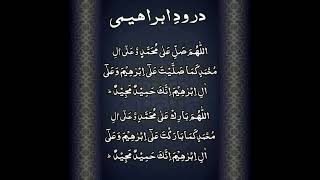 درودِ ابراهیمی
اَللّٰهُمَّ صَلِّ عَلٰی مُحَمَّدٍ وَّعَلٰٓی اٰلِ
مُحَمَّدٍ کَمَا صَلَّیْتَ عَلٰٓی اِبْرٰهِیْمَ وَعَلٰٓی
اٰلِ اِبْرٰهِیْمَ اِنَّکَ حَمِیْدٌ مَّجِیْدٌ ؕ
اَللّٰهُمَّ بَارِکْ عَلٰی مُحَمَّدٍ وَّعَلٰٓی اٰلِ
مُحَمَّدٍ کَمَا بَارَکْتَ عَلٰٓی اِبْرٰهِیْمَ وَعَلٰٓی
اٰلِ اِبْرٰهِیْمَ اِنَّکَ حَمِیْدٌ مَّجِیْدٌ ؕ